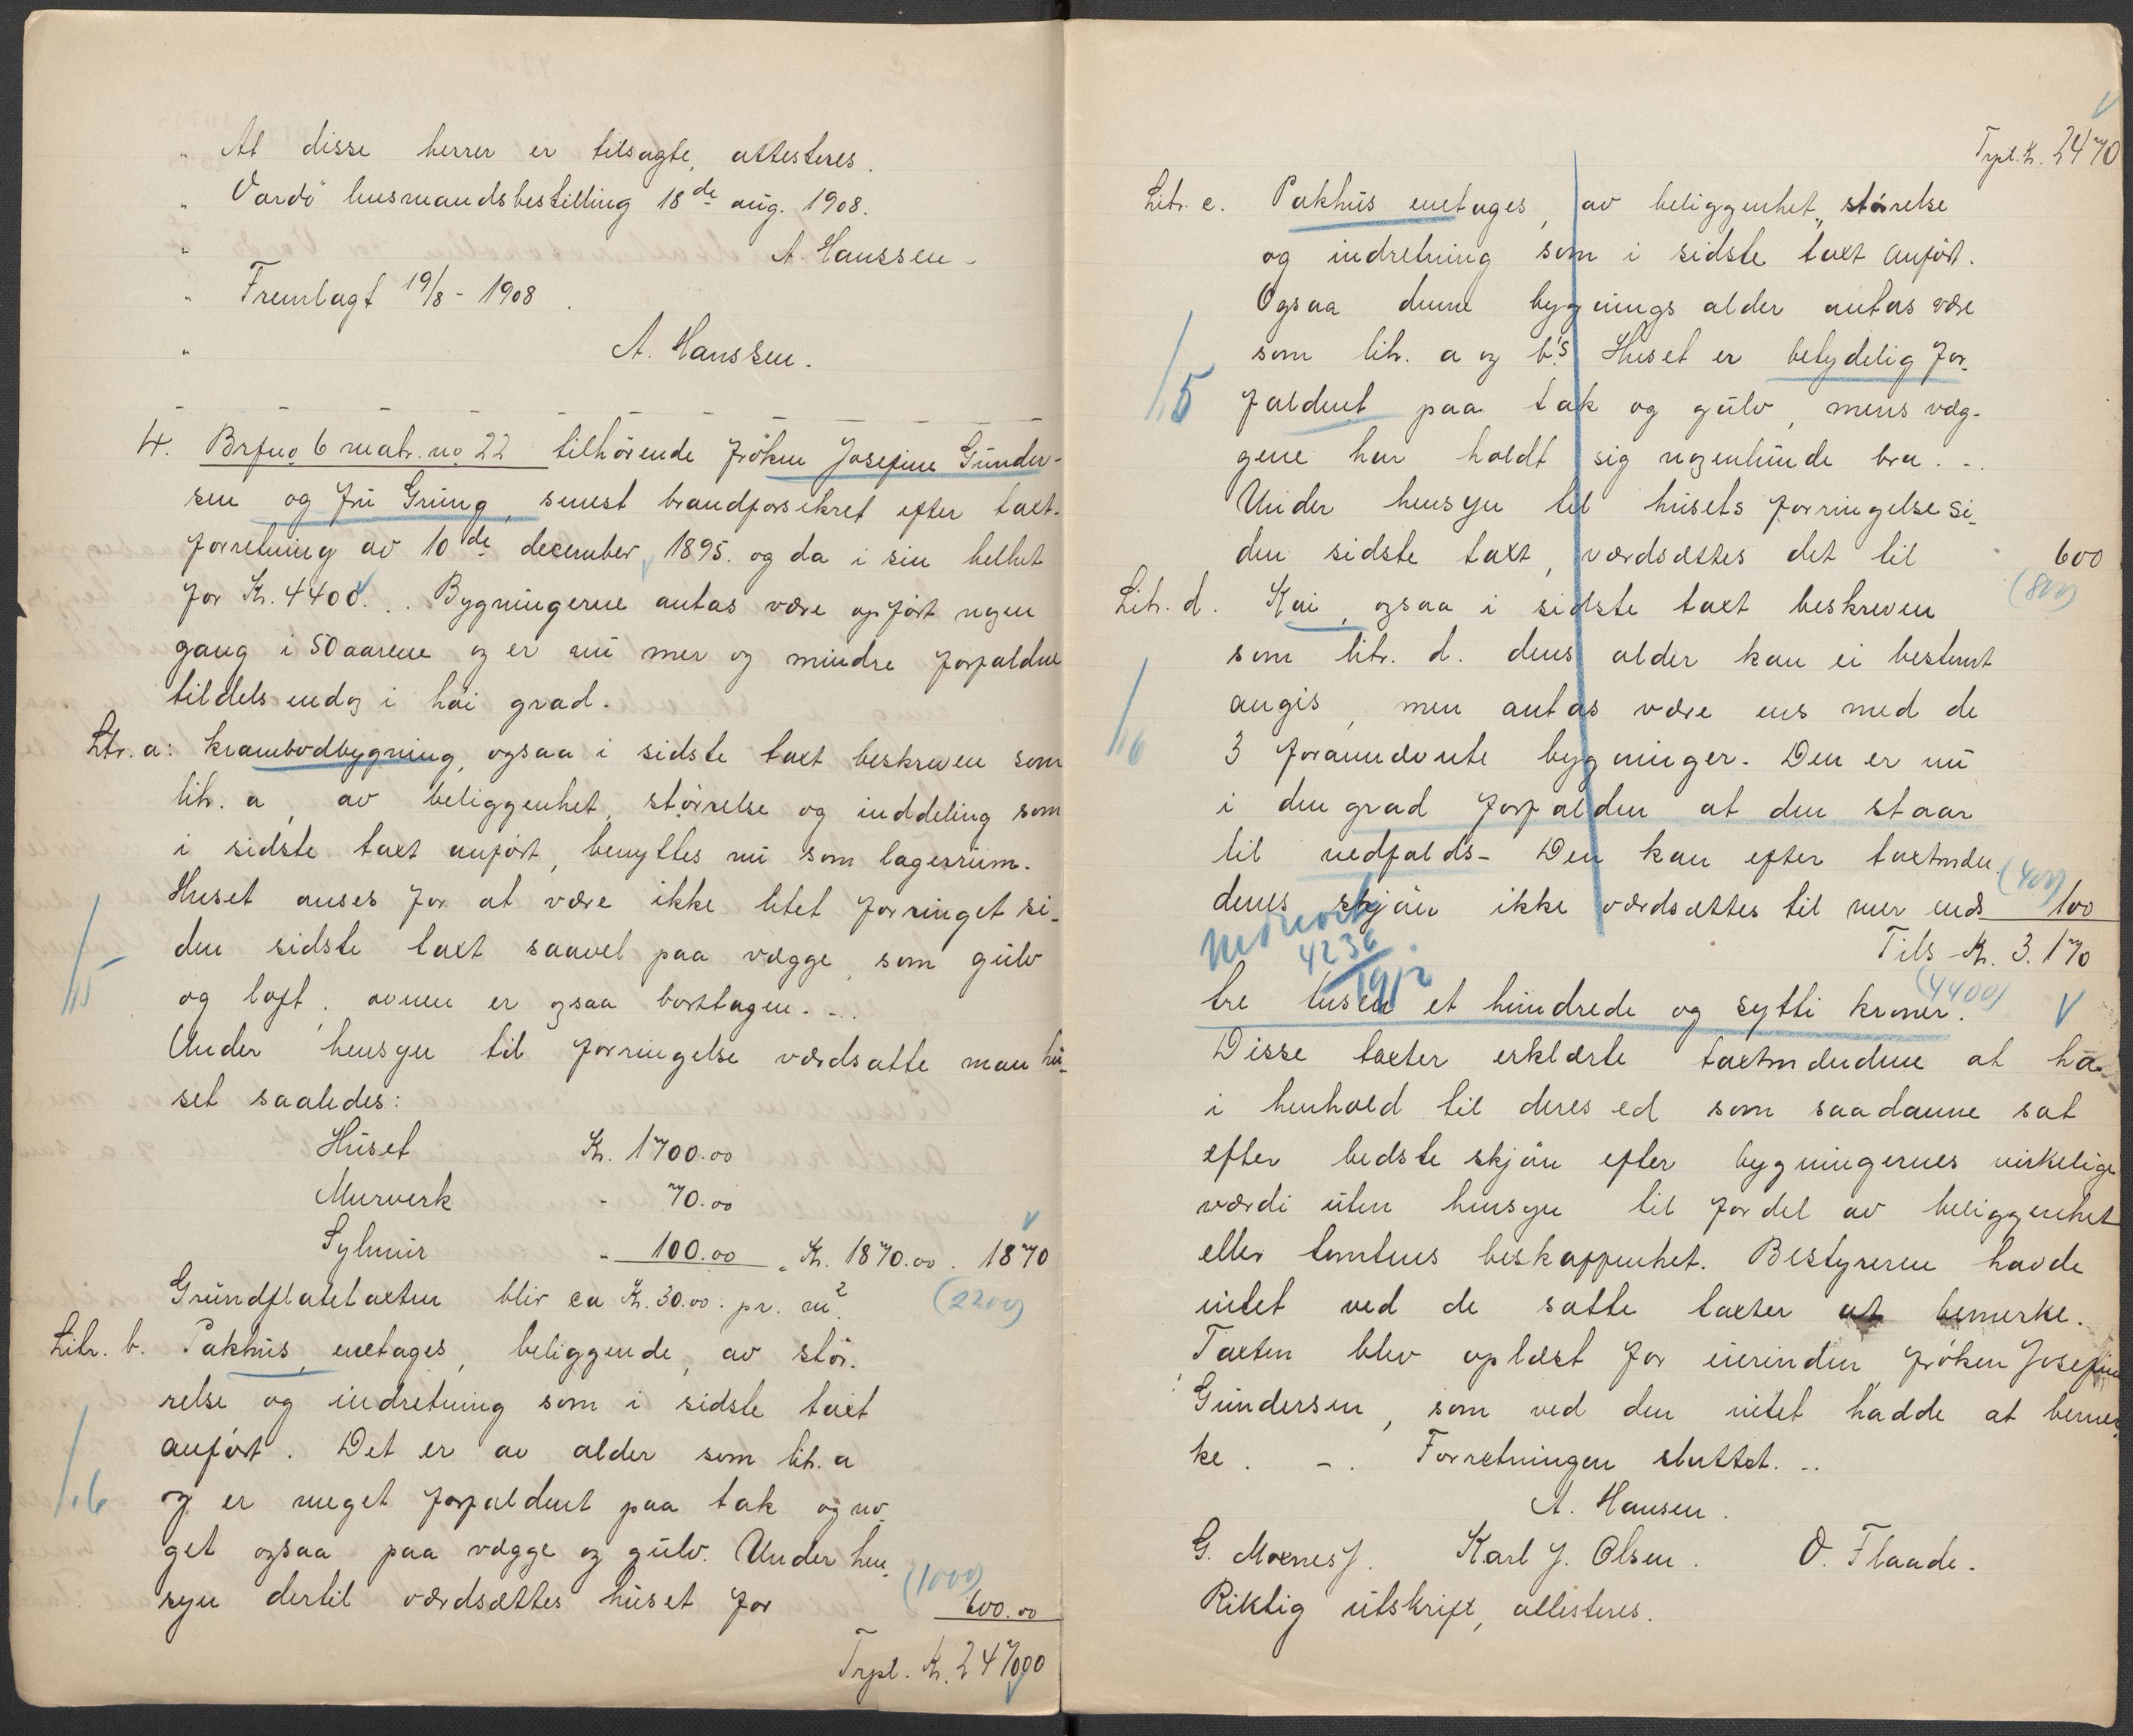 " At disse herrer er tilsagte, attesteres.
" Vardö husmandsbestilling 18de aug. 1908.
" A. Hanssen -
" Fremlagt 19/8 - 1908.
" A. Hanssen.
4. Brfno 6 matr. no 22 tilhörende fröken Josefine Gunder-
sen og fru Gring, senest brandforsikret efter taxt-
forretning av 10de december 1895. og da i sin helhet
for Kr. 4400. .. Bygningerne antas være opfört nogen
gang i 50 aarene og er nu mer og mindre forfaldne
tildels endog i höi grad.
Litr. a: Krambodbygning, ogsaa i sidste taxt beskreven som
litr. a, av beliggenhet, störrelse og inddeling som
i sidste taxt anfört, benyttes nu som lagerrum.
Huset anses for at være ikke litet forringet si-
den sidste taxt saavel paa vægge, som gulv
og loft. ovnen er ogsaa borttagen. - ..
1/15
Under hensyn til forringelse værdsatte man hu-
set saaledes:
Huset Kr. 1700.00
Murverk - 70.00
Sylmur - 100.00 " Kr. 1870.00. 1870
Grundflatetaxten blir ca Kr. 30.00. pr. m2. (2200)
Litr. b. Pakhus, enetages, beliggende, av stör-
relse og indretning som i sidste taxt
anfört. Det er av alder som litr. a
og er meget forfaldent paa tak og no-
1/16
get ogsaa paa vægge og gulv. Under hen-
syn dertil værdsættes huset for (1000) 600.00
Trpt. Kr. 2470.00
Trpt. Kr. 2470
Litr. c. Pakhus enetages, av beliggenhet, störelse
og indretning som i sidste taxt anfört.
Ogsaa denne bygnings alder antas være
som litr. a og b's Huset er betydelig for-
1/15
faldent paa tak og gulv, mens væg-
gene har holdt sig nogenlunde bra. - .
Under hensyn til husets forringelse si-
den sidste taxt, værdsættes det til 600
(800)
Litr. d. Kai, ogsaa i sidste taxt beskreven
som litr. d. dens alder kan ei bestemt
angis, men antas være ens med de
1/16
3 forannævnte bygninger. Den er nu
i den grad forfalden at den staar
til nedfalds - Den kan efter taxtmæn-
(400)
denes skjön ikke værdsættes til mer end 100
4236
1912
Tils Kr. 3.170
(4400)
tre tusen et hundrede og sytti kroner.
Disse taxter erklærte taxtmændene at ha
i henhold til deres ed som saadanne sat
efter bedste skjön efter bygningernes virkelige
værdi uten hensyn til fordel av beliggenhet
eller tomtens beskaffenhet. Bestyreren havde
intet ved de satte taxter at bemerke.
Taxten blev oplæst for eierinden fröken Josefine
Gundersen, som ved den intet hadde at bemer-
ke. - . Forretningen sluttet. ..
A. Hansen.
G. Moenes f. Karl J. Olsen. O. Flaade.
Riktig utskrift, attesteres.